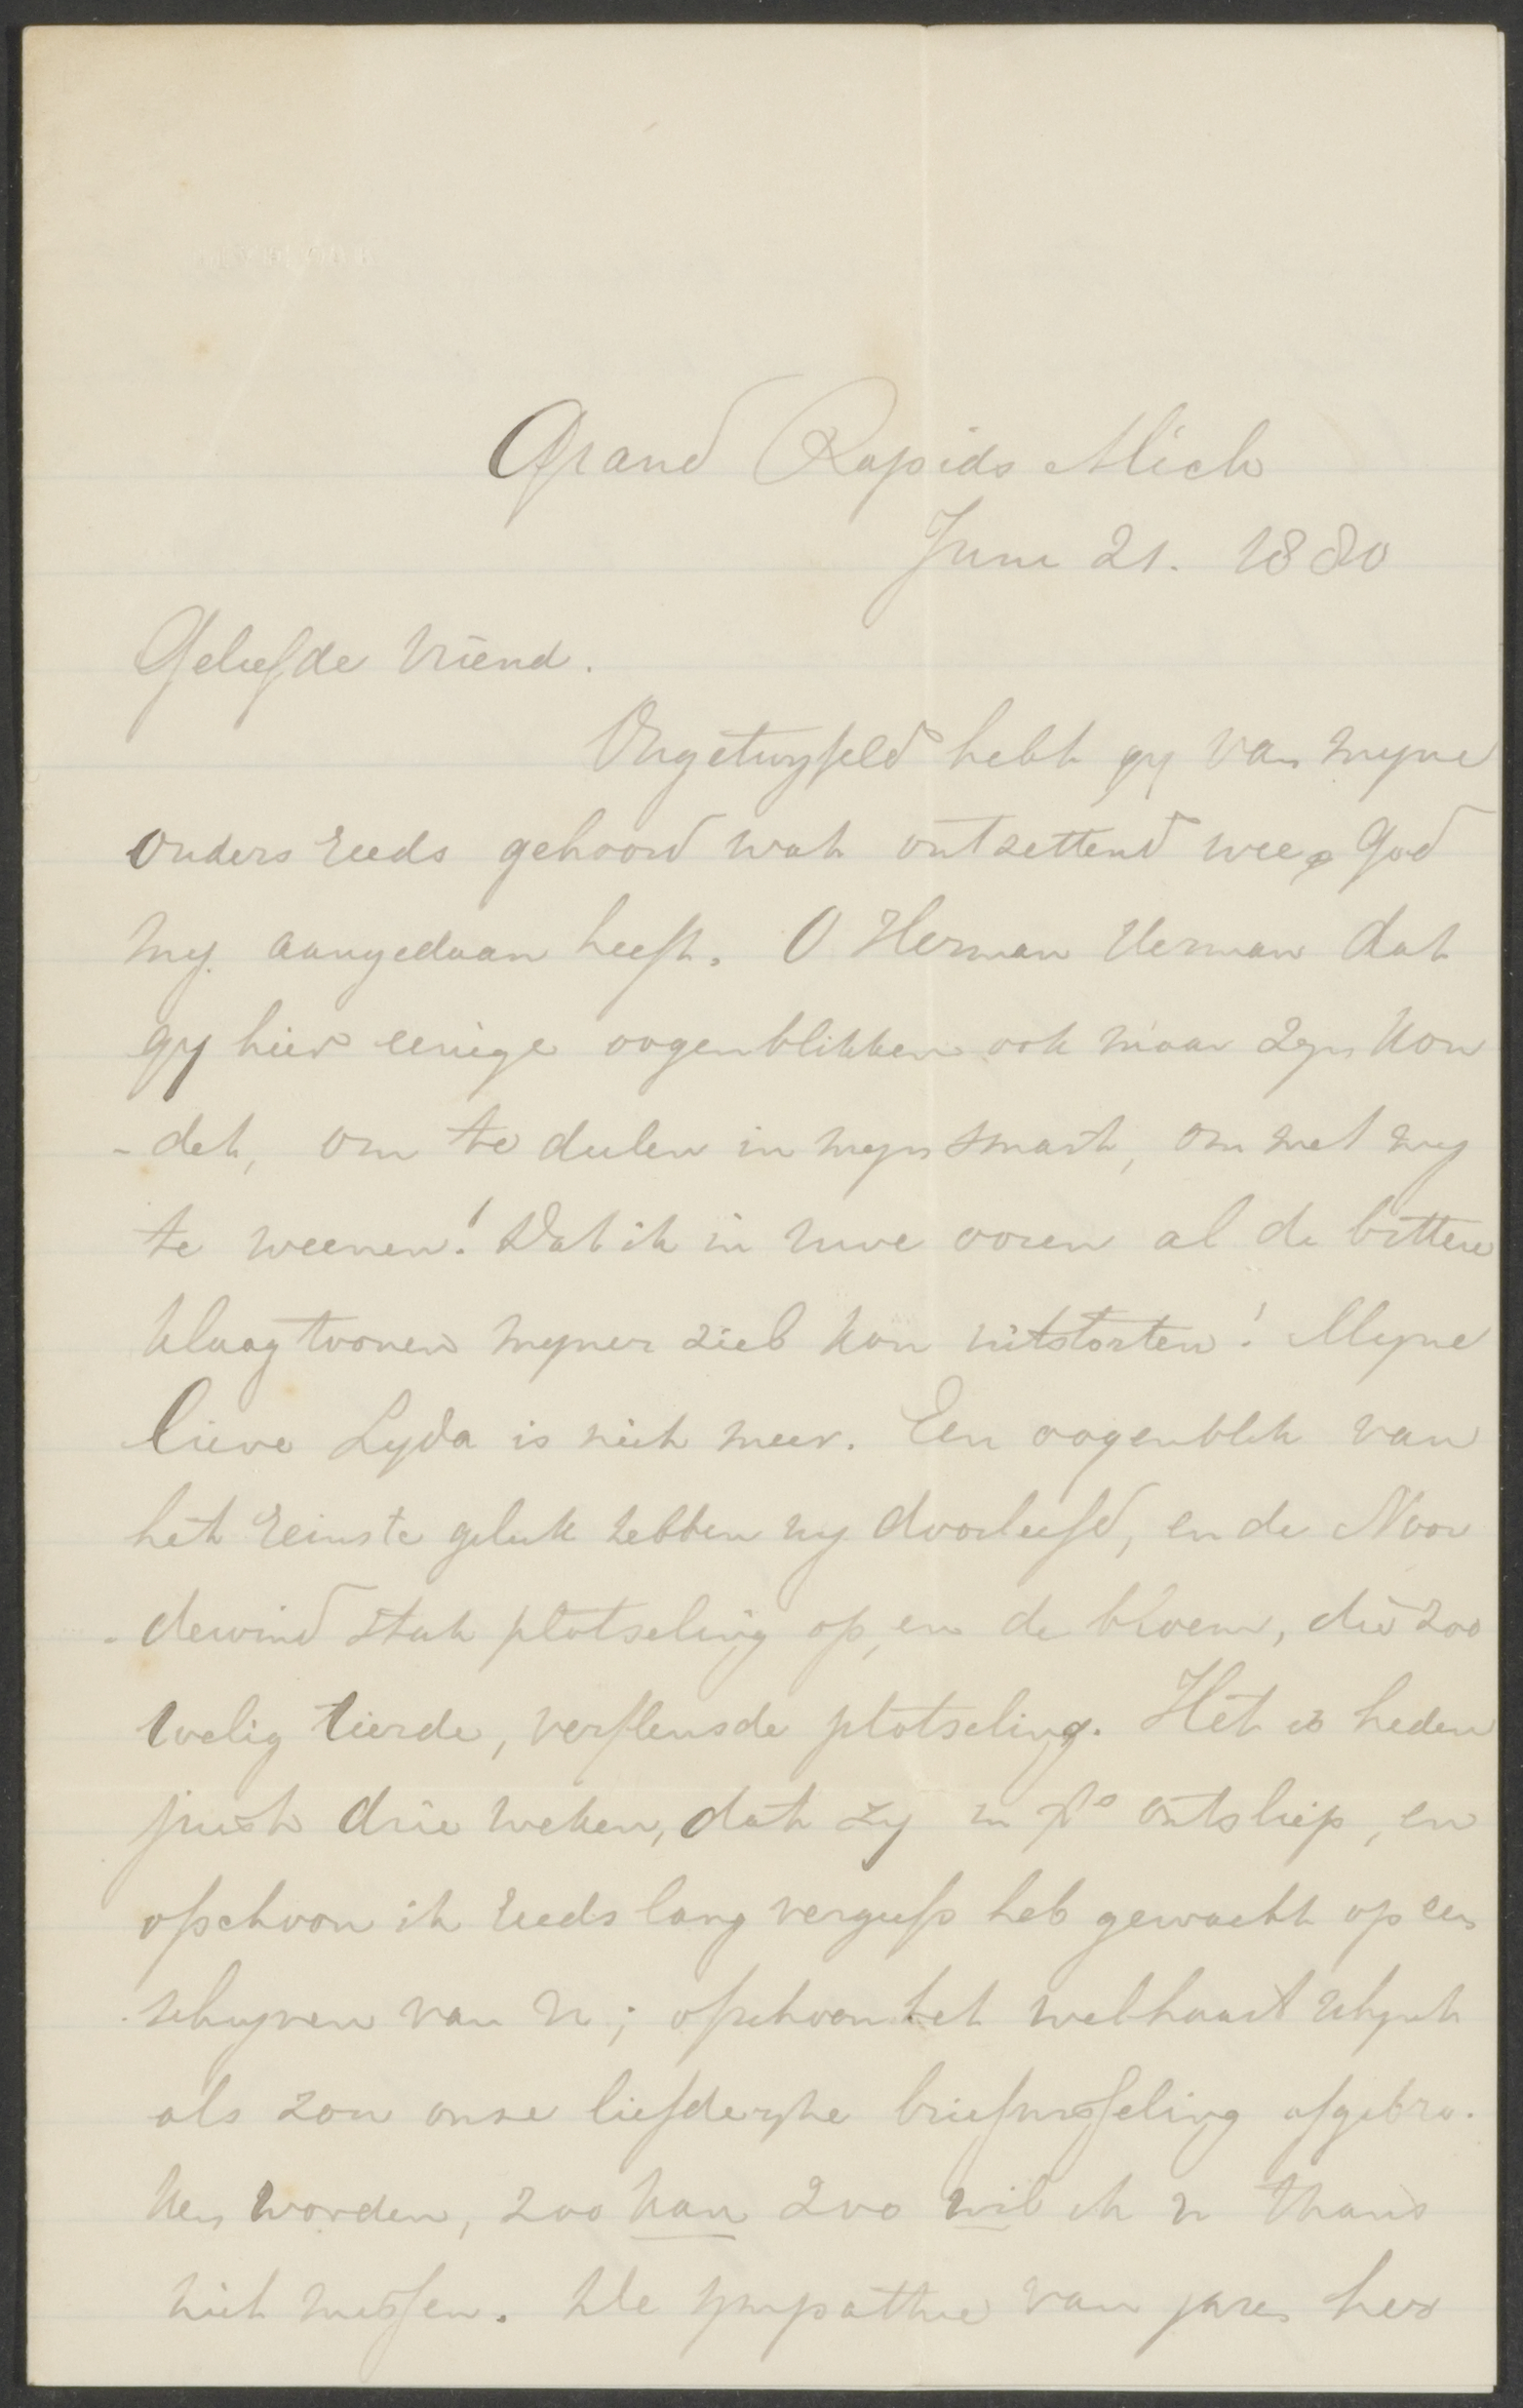 Grand Rapids Mich
June 21. 1880
Geliefde Vriend.
Ongetwyfeld hebt gy van myne
ouders reeds gehoord wat ontzettend wee God
my aangedaan heeft. O Herman Herman dat
gy hier eenige oogenblikken ook maar zyn kon
- det, om te deelen in myn smart, om met my
te weenen! Dat ik in uwe ooren al de bittere
klaagtoonen myner ziel kon uitstorten! Myne
lieve Lyda is niet meer. Een oogenblik van
het reinste geluk hebben wy doorleefd, en de Noor
- dewind stak plotseling op, en de bloem, die zoo
welig tierde, verflensde plotseling. Het is heden
juist drie weken, dat zy in ontsliep, en
ofschoon ik reeds lang vergeefs heb gewacht op een
schryven van U; ofschoon het welhaast schynt
als zou onze liefderyke briefwisseling afgebro-
ken worden, zoo kan zoo wil ik U thans
niet missen. De sympathie van jaren her